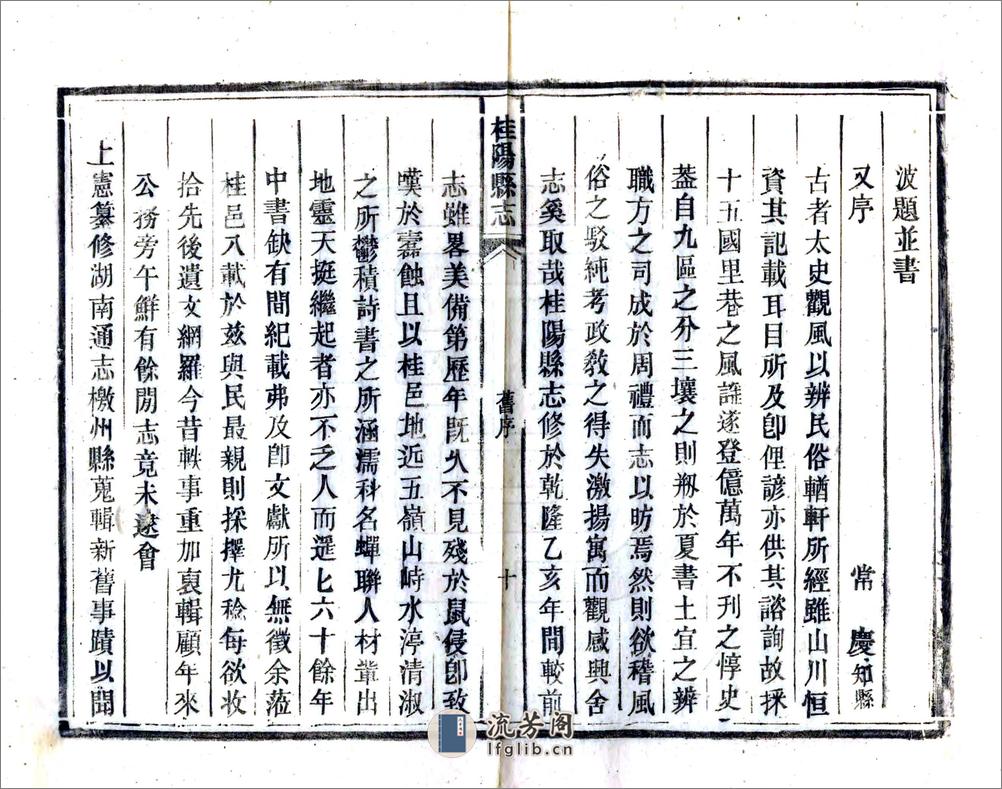 波題並書
又序 常慶知縣
古者太史觀風以辨民俗輶軒所經雖山川恒
資其記載耳目所及卽俚諺亦供其諮詢故採
十五國里巷之風謠遂登億萬年不刊之惇史
葢自九區之分三壤之則刱於夏書土宜之辨
職方之司成於周禮而志以昉焉然則欲稽風
俗之駁純考政敎之得失激揚寓而觀感興舍
志奚取哉桂陽縣志修於乾隆乙亥年間較前
桂陽縣志
舊序
十
志雖畧美備第歷年旣久不見殘於鼠侵卽致
嘆於蠹蝕且以桂邑地近五嶺山峙水渟清淑
之所鬱積詩書之所涵濡科名蟬聯人材輩出
地靈天挺繼起者亦不乏人而遲匕六十餘年
中書缺有間紀載弗及卽文獻所以無徵余蒞
桂邑八載於茲與民最親則採擇尤稔每欲收
拾先後遺文網羅今昔軼事重加裒輯顧年來
公務旁午鮮有餘閒志竟未遂會
上憲纂修湖南通志檄州縣蒐輯新舊事蹟以聞
流芳阁
lfglib.cn